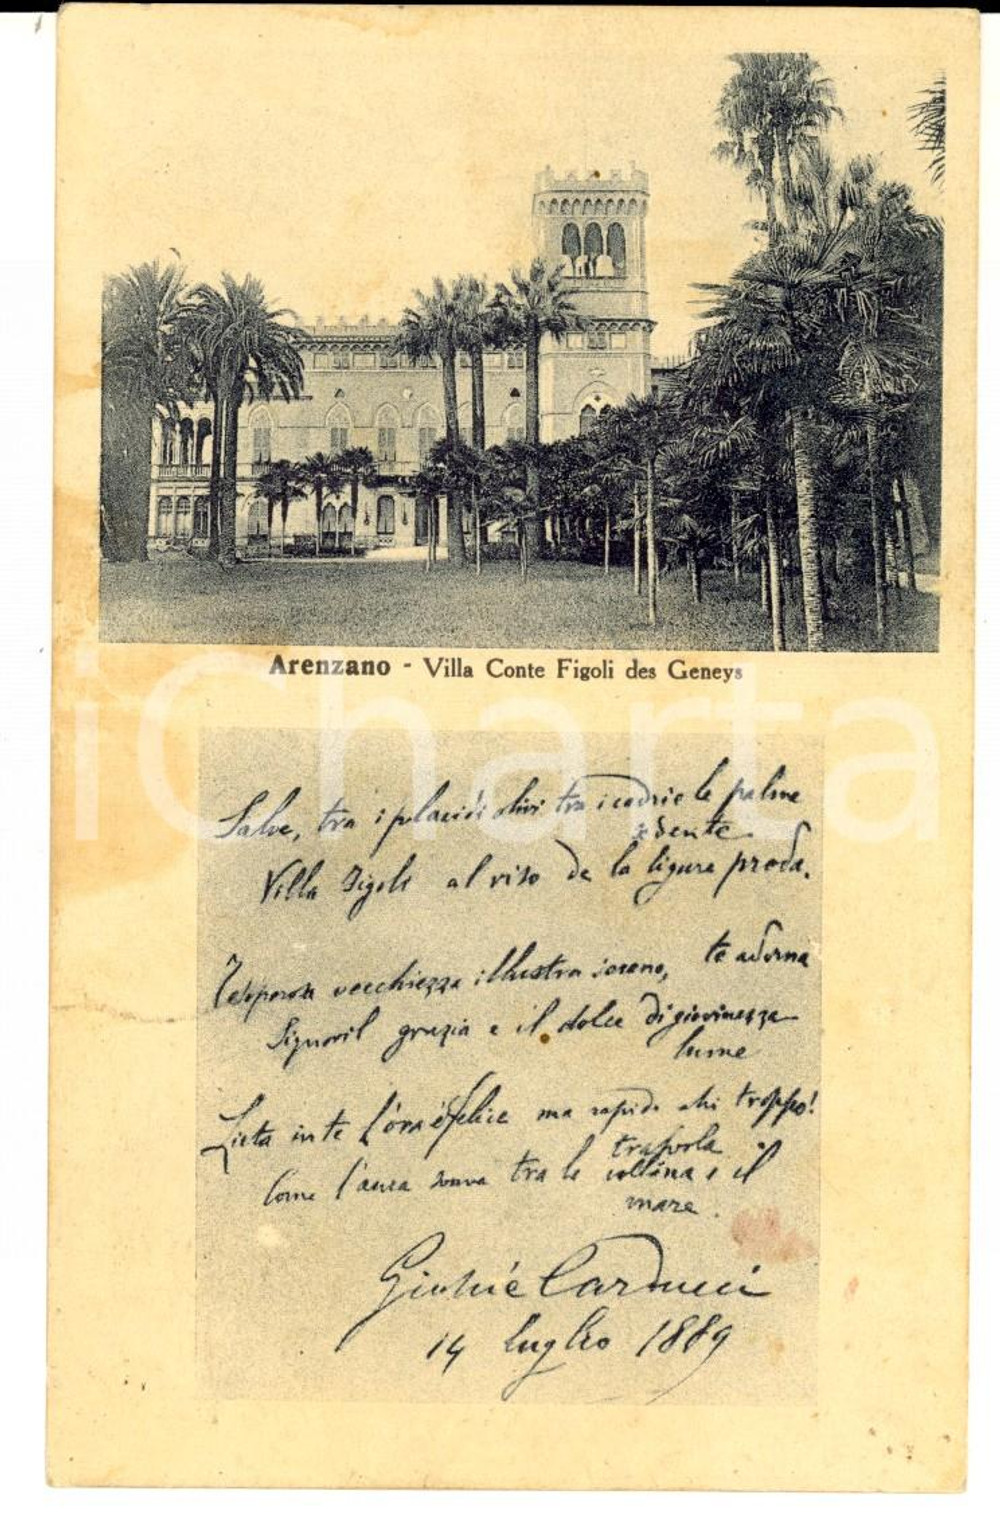 Arenzano - Villa Conte Figoli des Geneys
Salve, tra i placidi olivi tra i cedri e le palme
sedente
Villa Figoli al riso de la ligure proda.
vecchiezza illustra serena, te adorna
Signoril grazia e il dolce di giovinezza
lume
Lieta in te l'ora è felice ma rapida ahi troppo!
trasvola
Come l'aura tra le collina e il
mare.
Giosuè Carducci
14 luglio 1889
iCharta